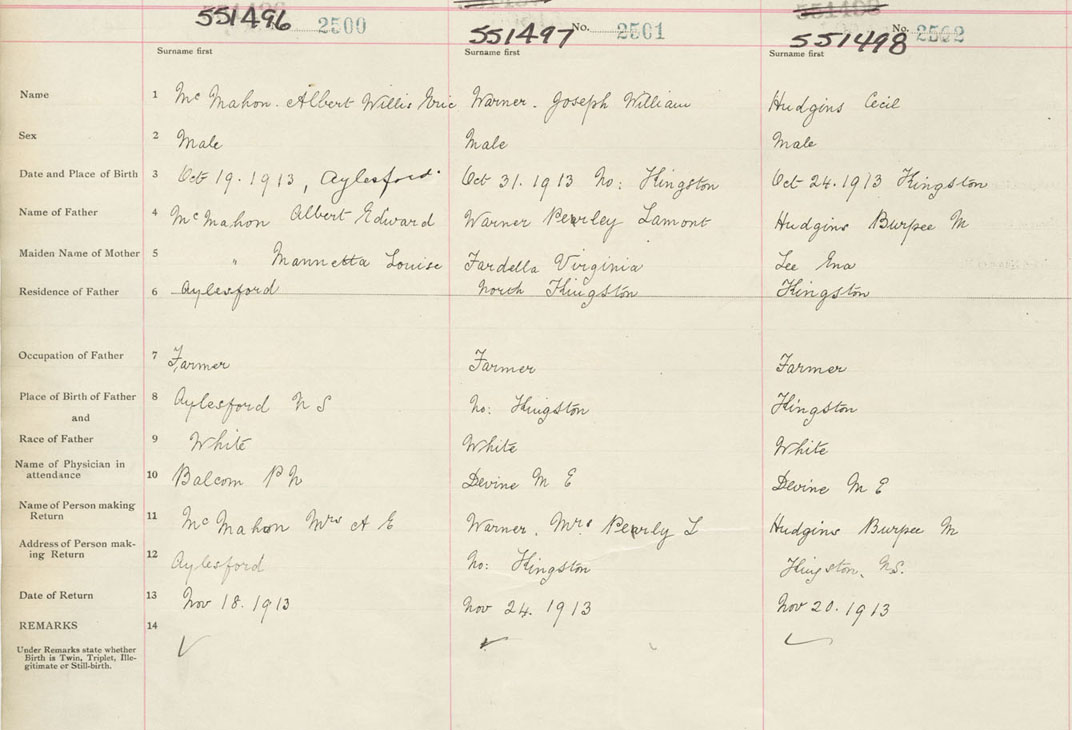 551496 2500 551497 No. 2501 551498 No. 2502
Surname first Surname first Surname first
Name 1 Mc Mahon. Albert Willis Eric Warner. Joseph William Hudgins Cecil
Sex 2 Male Male Male
Date and Place of Birth 3 Oct 19. 1913, Aylesford. Oct 31. 1913 No: Kingston Oct 24. 1913 Kingston
Name of Father 4 Mc Mahon Albert Edward Warner Perley Lamont Hudgins Burpee M
Maiden Name of Mother 5 " Mannetta Louise Fardella Virginia Lee Ena
Residence of Father 6 Aylesford North Kingston Kingston
Occupation of Father 7 Farmer Farmer Farmer
Place of Birth of Father 8 Aylesford N S No: Kingston Kingston
and
Race of Father 9 White White White
Name of Physician in
attendance 10 Balcom P N Devine M E Devine M E
Name of Person making
Return 11 Mc Mahon Mrs A E Warner. Mrs Perly L Hudgins Burpee M
Address of Person mak-
ing Return 12 Aylesford No: Kingston Kingston, N.S.
Date of Return 13 Nov 18. 1913 Nov 24. 1913 Nov 20. 1913
REMARKS 14
Under Remarks state whether
Birth is Twin, Triplet, Ille-
gitimate or Still-birth.